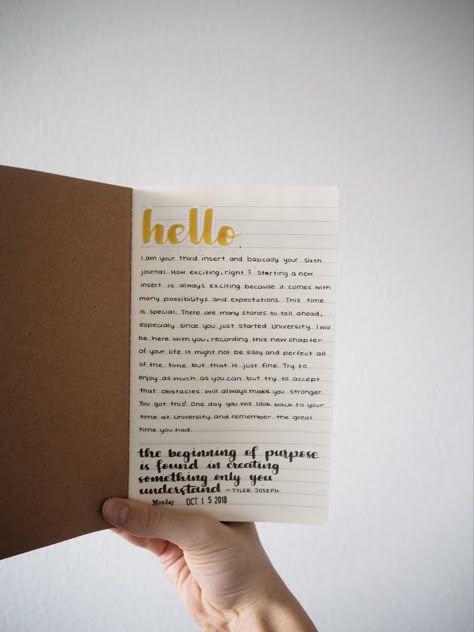 hello
I am your third insert and basically your sixth
journal. How exciting, right? Starting a new
insert is always exciting because it comes with
many possibilitys and expectations. This time
is special. There are many stories to tell ahead,
especialy since you just started University. I will
be here with you, recording this new chapter
of your life. It might not be easy and perfect all
of the time but that is just fine. Try to
enjoy as much as you can but try to accept
that obstacles will always make you stronger.
You got this! One day you will look back to your
time at University and remember the great
time you had.
the beginning of purpose
is found in creating
something only you
understand - TYLER JOSEPH
Monday OCT 15 2018